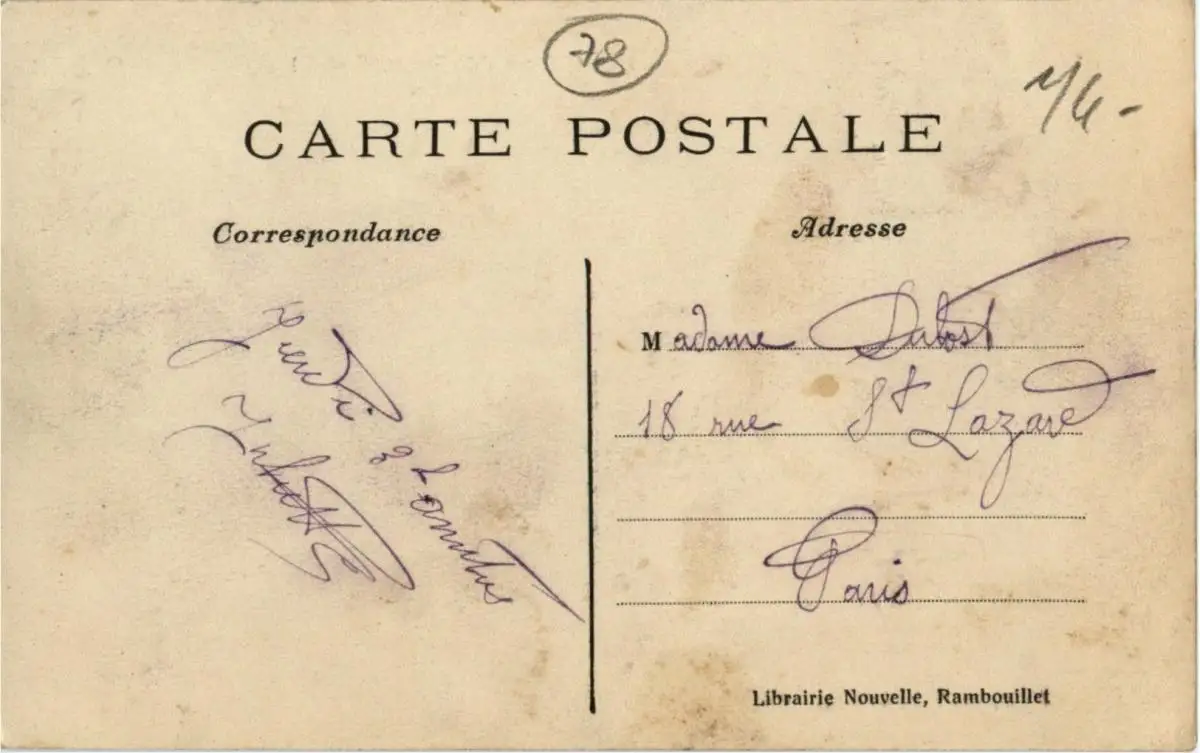 78
CARTE POSTALE
Correspondance
Adresse
Madame Dubost
18 rue St Lazare
Paris
Librairie Nouvelle, Rambouillet